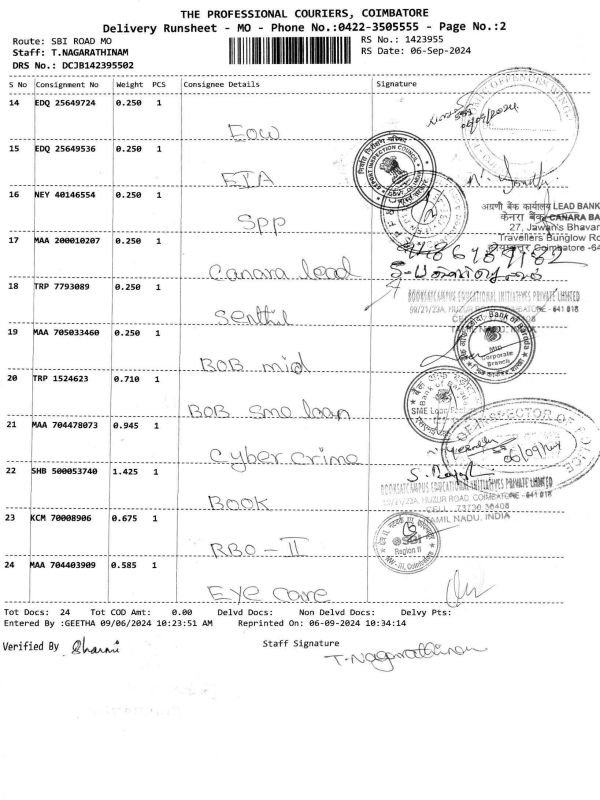 THE PROFESSIONAL COURIERS, COIMBATORE
Delivery Runsheet - MO - Phone No.:0422-3505555 - Page No.:2
Route: SBI ROAD MO
RS No.: 1423955
Staff: T.NAGARATHINAM
RS Date: 06-Sep-2024
DRS No.: DCJB142395502
S No Consignment No Weight PCS Consignee Details Signature
14 EDQ 25649724 0.250 1
EOW
06/09/2024
15 EDQ 25649536 0.250 1
EIA
16 NEY 40146554 0.250 1
SPP
अग्रणी बैंक कार्यालय LEAD BANK
केनरा बैंक CANARA BA
27, Jawan's Bhavan
Travellers Bunglow Ro
Coimbatore -64
17 MAA 200010207 0.250 1
Canara lead
18 TRP 7793089 0.250 1
Senthil
BOOKSATCAMPUS EDUCATIONAL INITIATIVES PRIVATE LIMITED
59/21/23A, HUZUR ROAD COIMBATORE - 641 018
19 MAA 705033460 0.250 1
BOB mid
Bank of Baroda
Mid
Corporate
Branch
20 TRP 1524623 0.710 1
BOB Sme loan
Bank of Baroda
SME Loan
21 MAA 704478073 0.945 1
Cyber crime
OF INSPECTOR OF POLICE
06/09/24
22 SHB 500053740 1.425 1
BOOK
BOOKSATCAMPUS EDUCATIONAL INITIATIVES PRIVATE LIMITED
59/21/23A, HUZUR ROAD COIMBATORE - 641 018
CELL : 73730 38408
TAMIL NADU, INDIA
23 KCM 70008906 0.675 1
RBO - II
SBI
Region II
24 MAA 704403909 0.585 1
Eye care
Tot Docs: 24 Tot COD Amt: 0.00 Delvd Docs: Non Delvd Docs: Delvy Pts:
Entered By :GEETHA 09/06/2024 10:23:51 AM Reprinted On: 06-09-2024 10:34:14
Verified By Dharani
Staff Signature
T.Nagarathinam